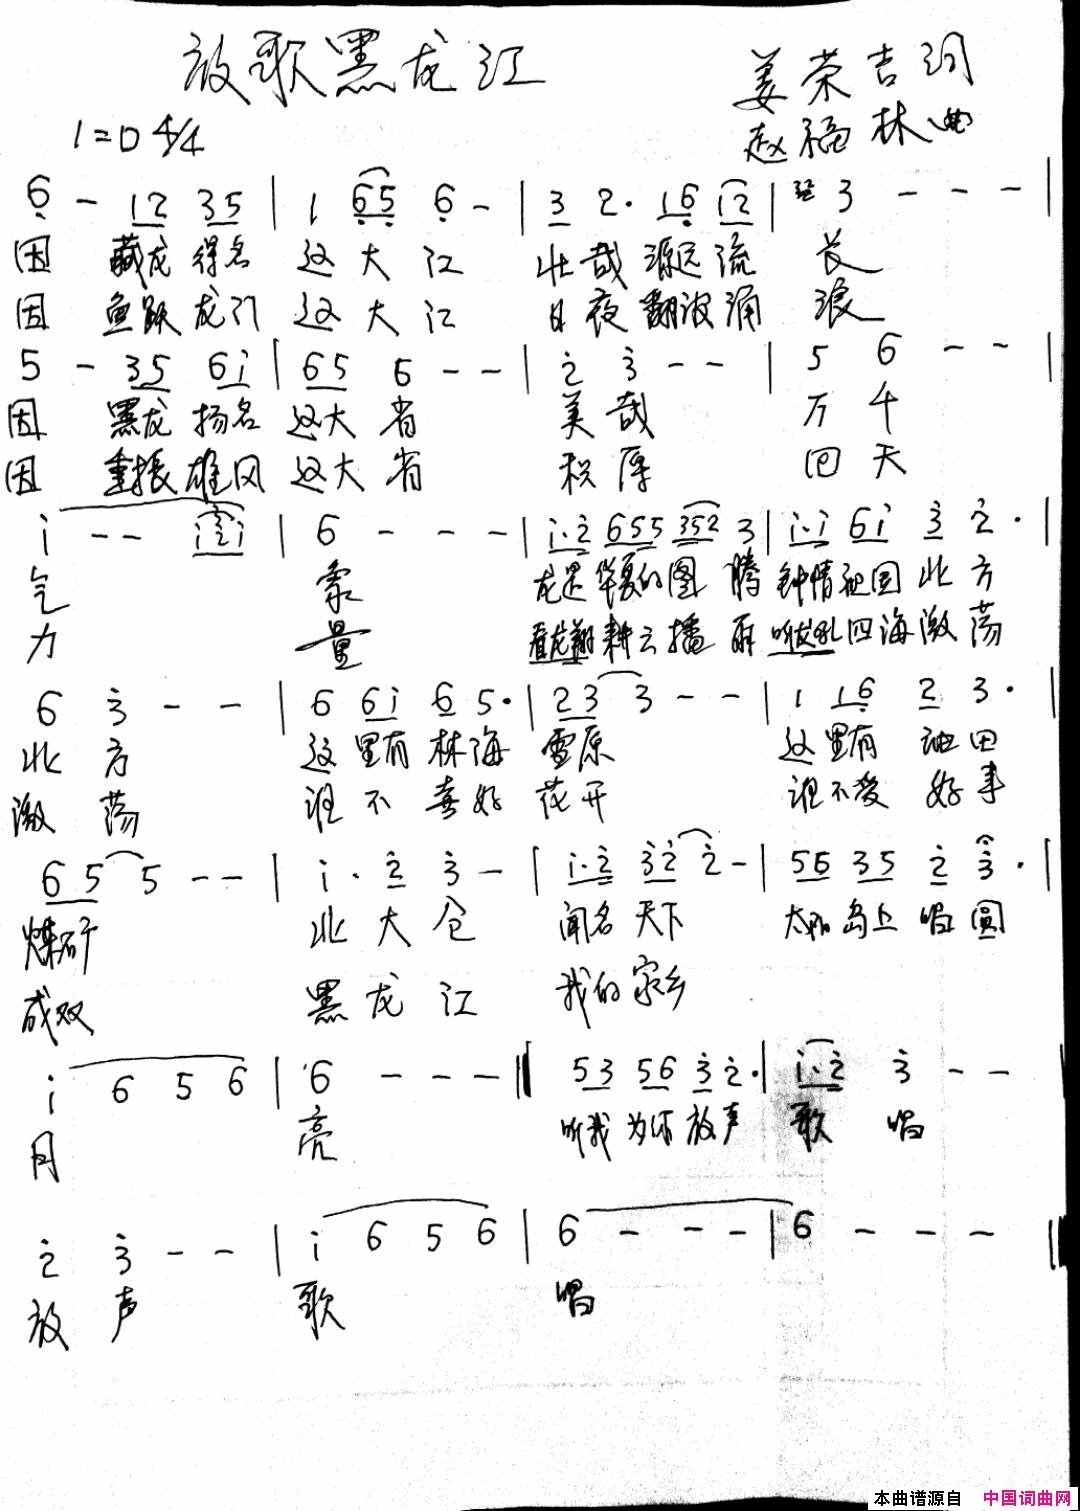 放歌黑龙江
姜荣吉词
赵福林曲
1=D 4/4
6 - 12 35 | 1 65 6 - | 3 2· 16 12 | 3 - - - |
因 藏龙 得名 这大江 壮哉 源远流 长
因 鱼跃 龙门 这大江 日夜 翻波涌 浪
5 - 35 6i | 65 6 - - | 2 3 - - | 5 6 - - |
因 黑龙 扬名 这大省 美哉 万千
因 重振 雄风 这大省 积厚 回天
i - - i2i | 6 - - - | i·2 655 352 3 | i·i 6i 3 2· |
气 象 龙是 华夏的图 腾 钟情祖国 北方
力 量 看龙翔 耕云播 雨 听龙吼 四海激荡
6 3 - - | 6 6i 6 5· | 23 3 - - | 1 16 2 3· |
北方 这里有 林海 雪原 这里有 油田
激荡 谁不 喜好 花开 谁不爱 好事
65 5 - - | i· 2 3 - | i·2 32 2 - | 56 35 2 3· |
煤矿 北大仓 闻名天下 太阳岛上 唱圆
成双 黑龙江 我的家乡
i 6 5 6 | 6 - - - || 53 56 3 2· | i·2 3 - -
月 亮 听我 为你 放声 歌 唱
2 3 - - | i 6 5 6 | 6 - - - | 6 - - - ||
放声 歌 唱
本曲谱源自 中国词曲网